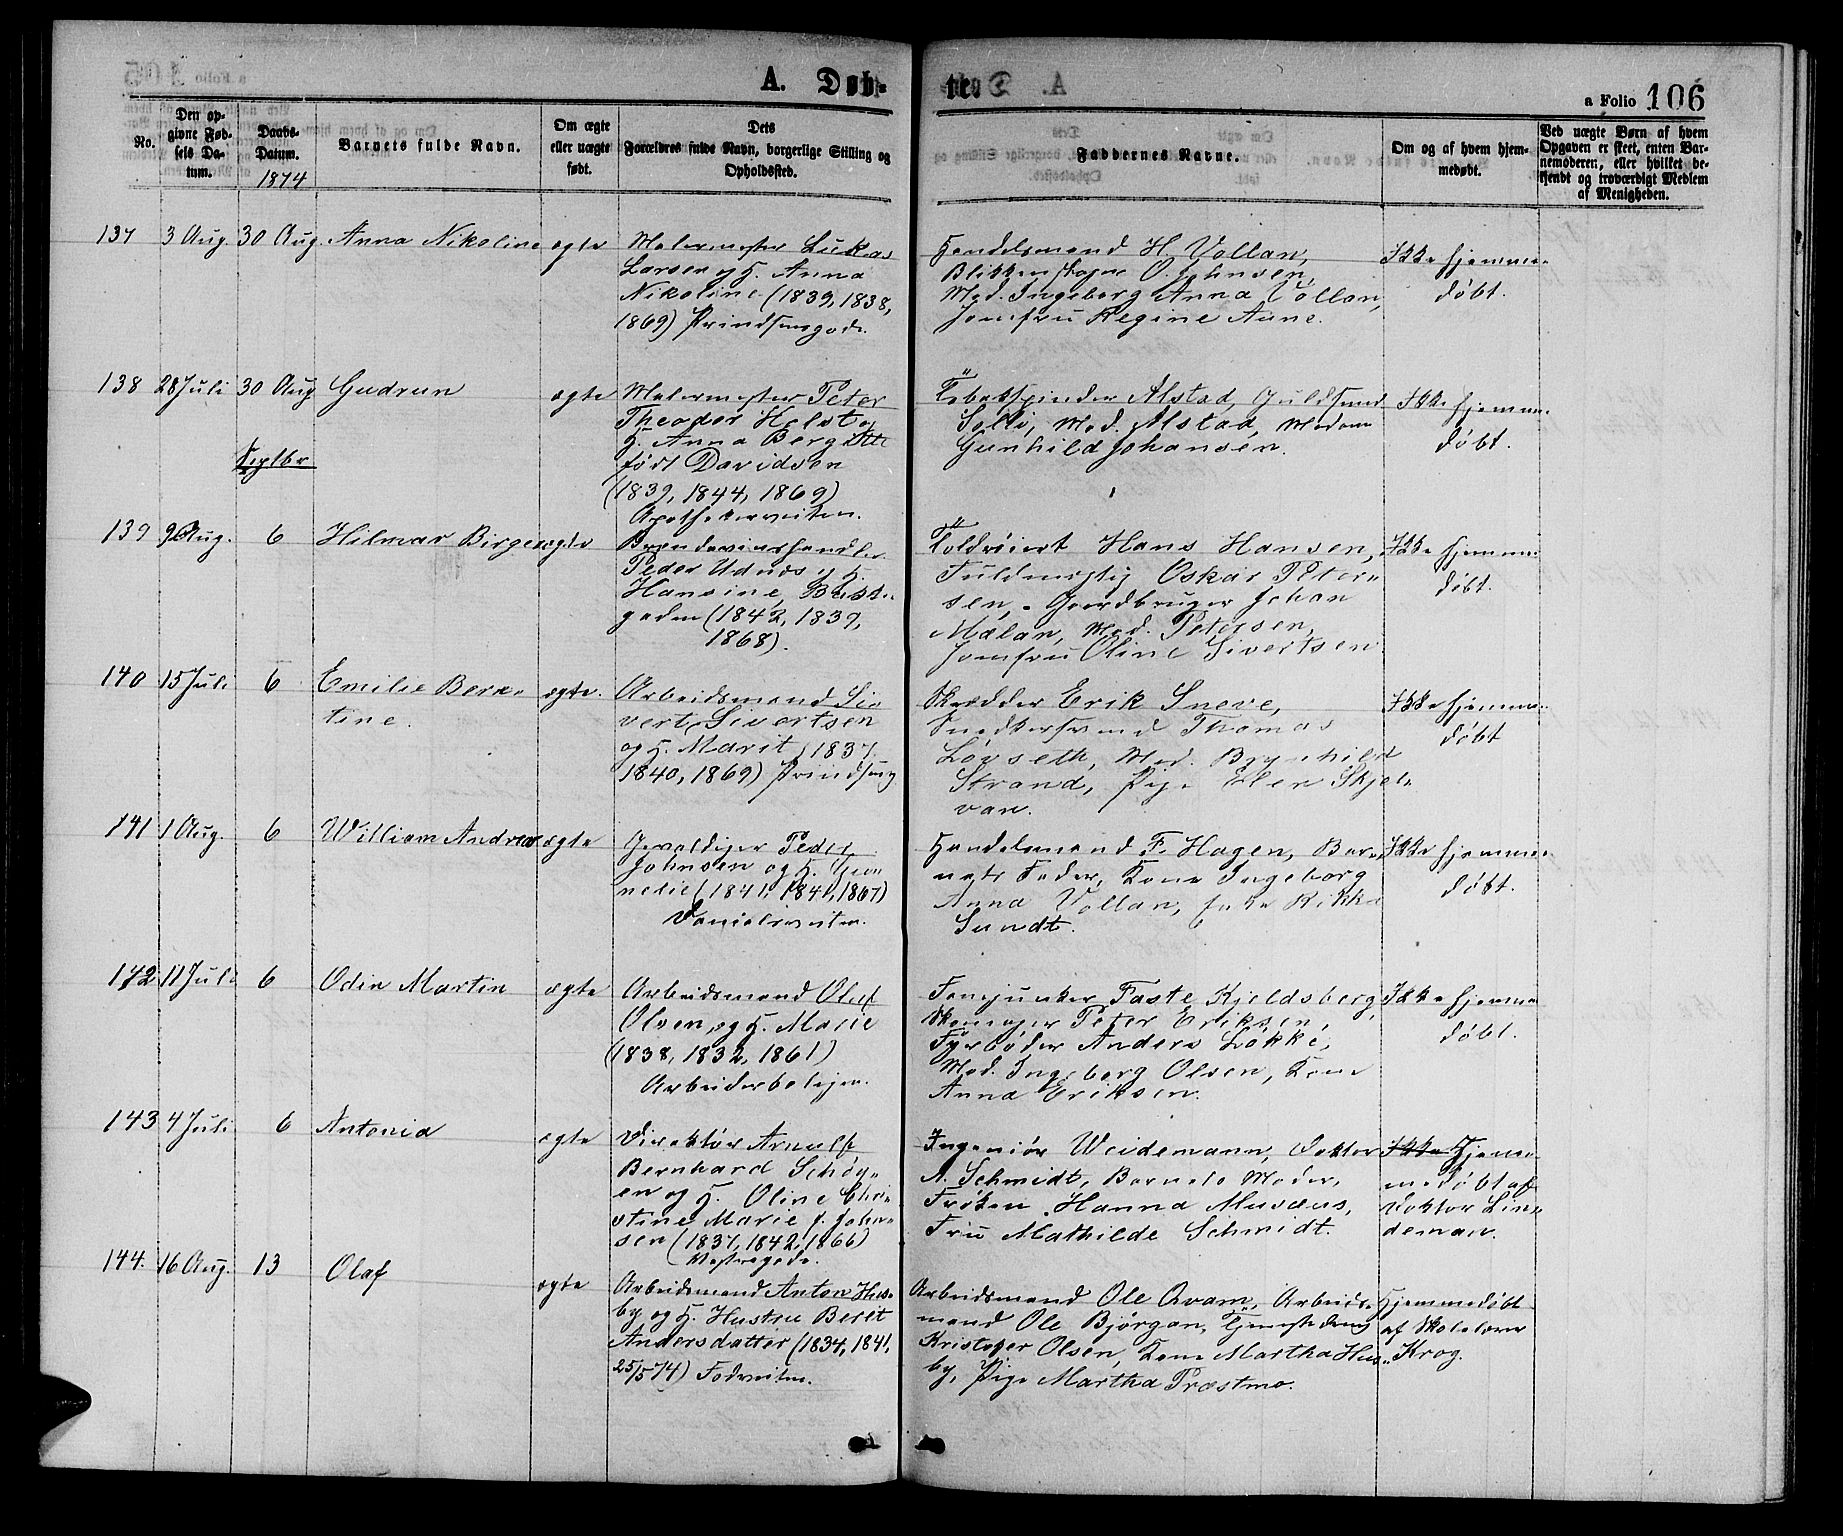 A. Døb-
te.
a Folio 106
No.
Den op-
givne Fød-
sels Da-
tum.
Daabs-
Datum.
1874
Barnets fulde Navn.
Om ægte
eller uægte
født.
Dets
Forældres fulde Navn, borgerlige Stilling og
Opholdssted.
Faddernes Navne.
Om og af hvem hjem-
medøbt.
Ved uægte Børn af hvem
Opgaven er skeet, enten Bar-
nemoderen, eller hvilket be-
kjendt og troværdigt Medlem
af Menigheden.
137
3 Aug.
30 Aug.
Anna Nikoline
ægte
Malermester Lukas
Larsen og H. Anna
Nikoline (1839, 1838,
1869) Prindsensgade.
Handelsmand H. Vollan,
Blikkenslager O. Johnsen,
Mad. Ingeborg Anna Vollan,
Jomfru Regine Aune.
Ikke hjemme-
døbt.
138
28 Juli
30 Aug
Gudrun
ægte
Malermester Peter
Theodor Holst og
H. Anna Bergitte
født Davidsen
(1839, 1844, 1869)
Apothekerveiten.
Tobakspinder Alstad, Guldsmed
Solli, Mad. Alstad, Madam
Gunhild Johansen.
Ikke hjemme-
døbt.
Septbr
139
9 Aug.
6
Hilmar Birger
ægte
Brændeviinshandler
Peder Udnæs og H.
Hansine,
gaden (1842, 1839,
1868).
Toldrøiert Hans Hansen,
Fuldmægtig Oskar Peter-
sen, Gaardbruger Johan
Mælan, Mad. Petersen,
Jomfru Oline Sivertsen
Ikke hjemme-
døbt.
140
15 Juli
6
Emilie Bern-
tine.
ægte.
Arbeidsmand Si-
vert Sivertsen
og H. Marit (1837,
1840, 1869) Prindsensg
Skrædder Erik Sneve,
Snedkersvend Thomas
Løvseth, Mad. Brynhild
Strand, Pige Elen Skjel-
van.
Ikke hjemme-
døbt
141
1 Aug.
6
William Andreas
ægte
Gevaldiger Peder
Johnsen og H. Gur-
nelie (1841, 1841, 1867)
Danielsveiten.
Handelsmand F. Hagen, Bar-
nets Fader, Kone Ingeborg
Anna Vollan, Enke Rikke
Sundt.
Ikke hjemme-
døbt.
142
11 Juli
6
Odin Martin
ægte
Arbeidsmand Oluf
Olsen, og H. Marie
(1838, 1832, 1861)
Arbeiderboligen.
Fanejunker Faste Kjeldsberg,
Skomager Peter Eriksen,
Fyrbøder Anders Løkke,
Mad. Ingeborg Olsen, Kone
Anna Eriksen.
Ikke hjemme-
døbt.
143
4 Juli
6
Antonia
ægte
Direktør Arnolf
Bernhard Schøy-
en og H. Oline Chri-
stine Marie f. John-
sen (1837, 1842, 1866)
Ingeniør Weidemann, Doktor
A. Schmidt, Barnets Moder,
Frøken Hanna Musæus,
Fru Mathilde Schmidt.
Ikke Hjem-
medøbt af
Doktor Lin-
deman.
144.
16 Aug.
13
Olaf
ægte
Arbeidsmand Anton Hus-
by og H. Hustru Berit
Andersdatter (1834, 1841,
25/5 74) Fodveiten.
Arbeidsmand Ole Qvam, Arbeids-
mand Ole Bjørgan, Tjenestedreng
Kristofer Olsen, Kone Martha Hus-
by, Pige Martha Præstmo.
Hjemmedøbt
af Skolelærer
Krog.